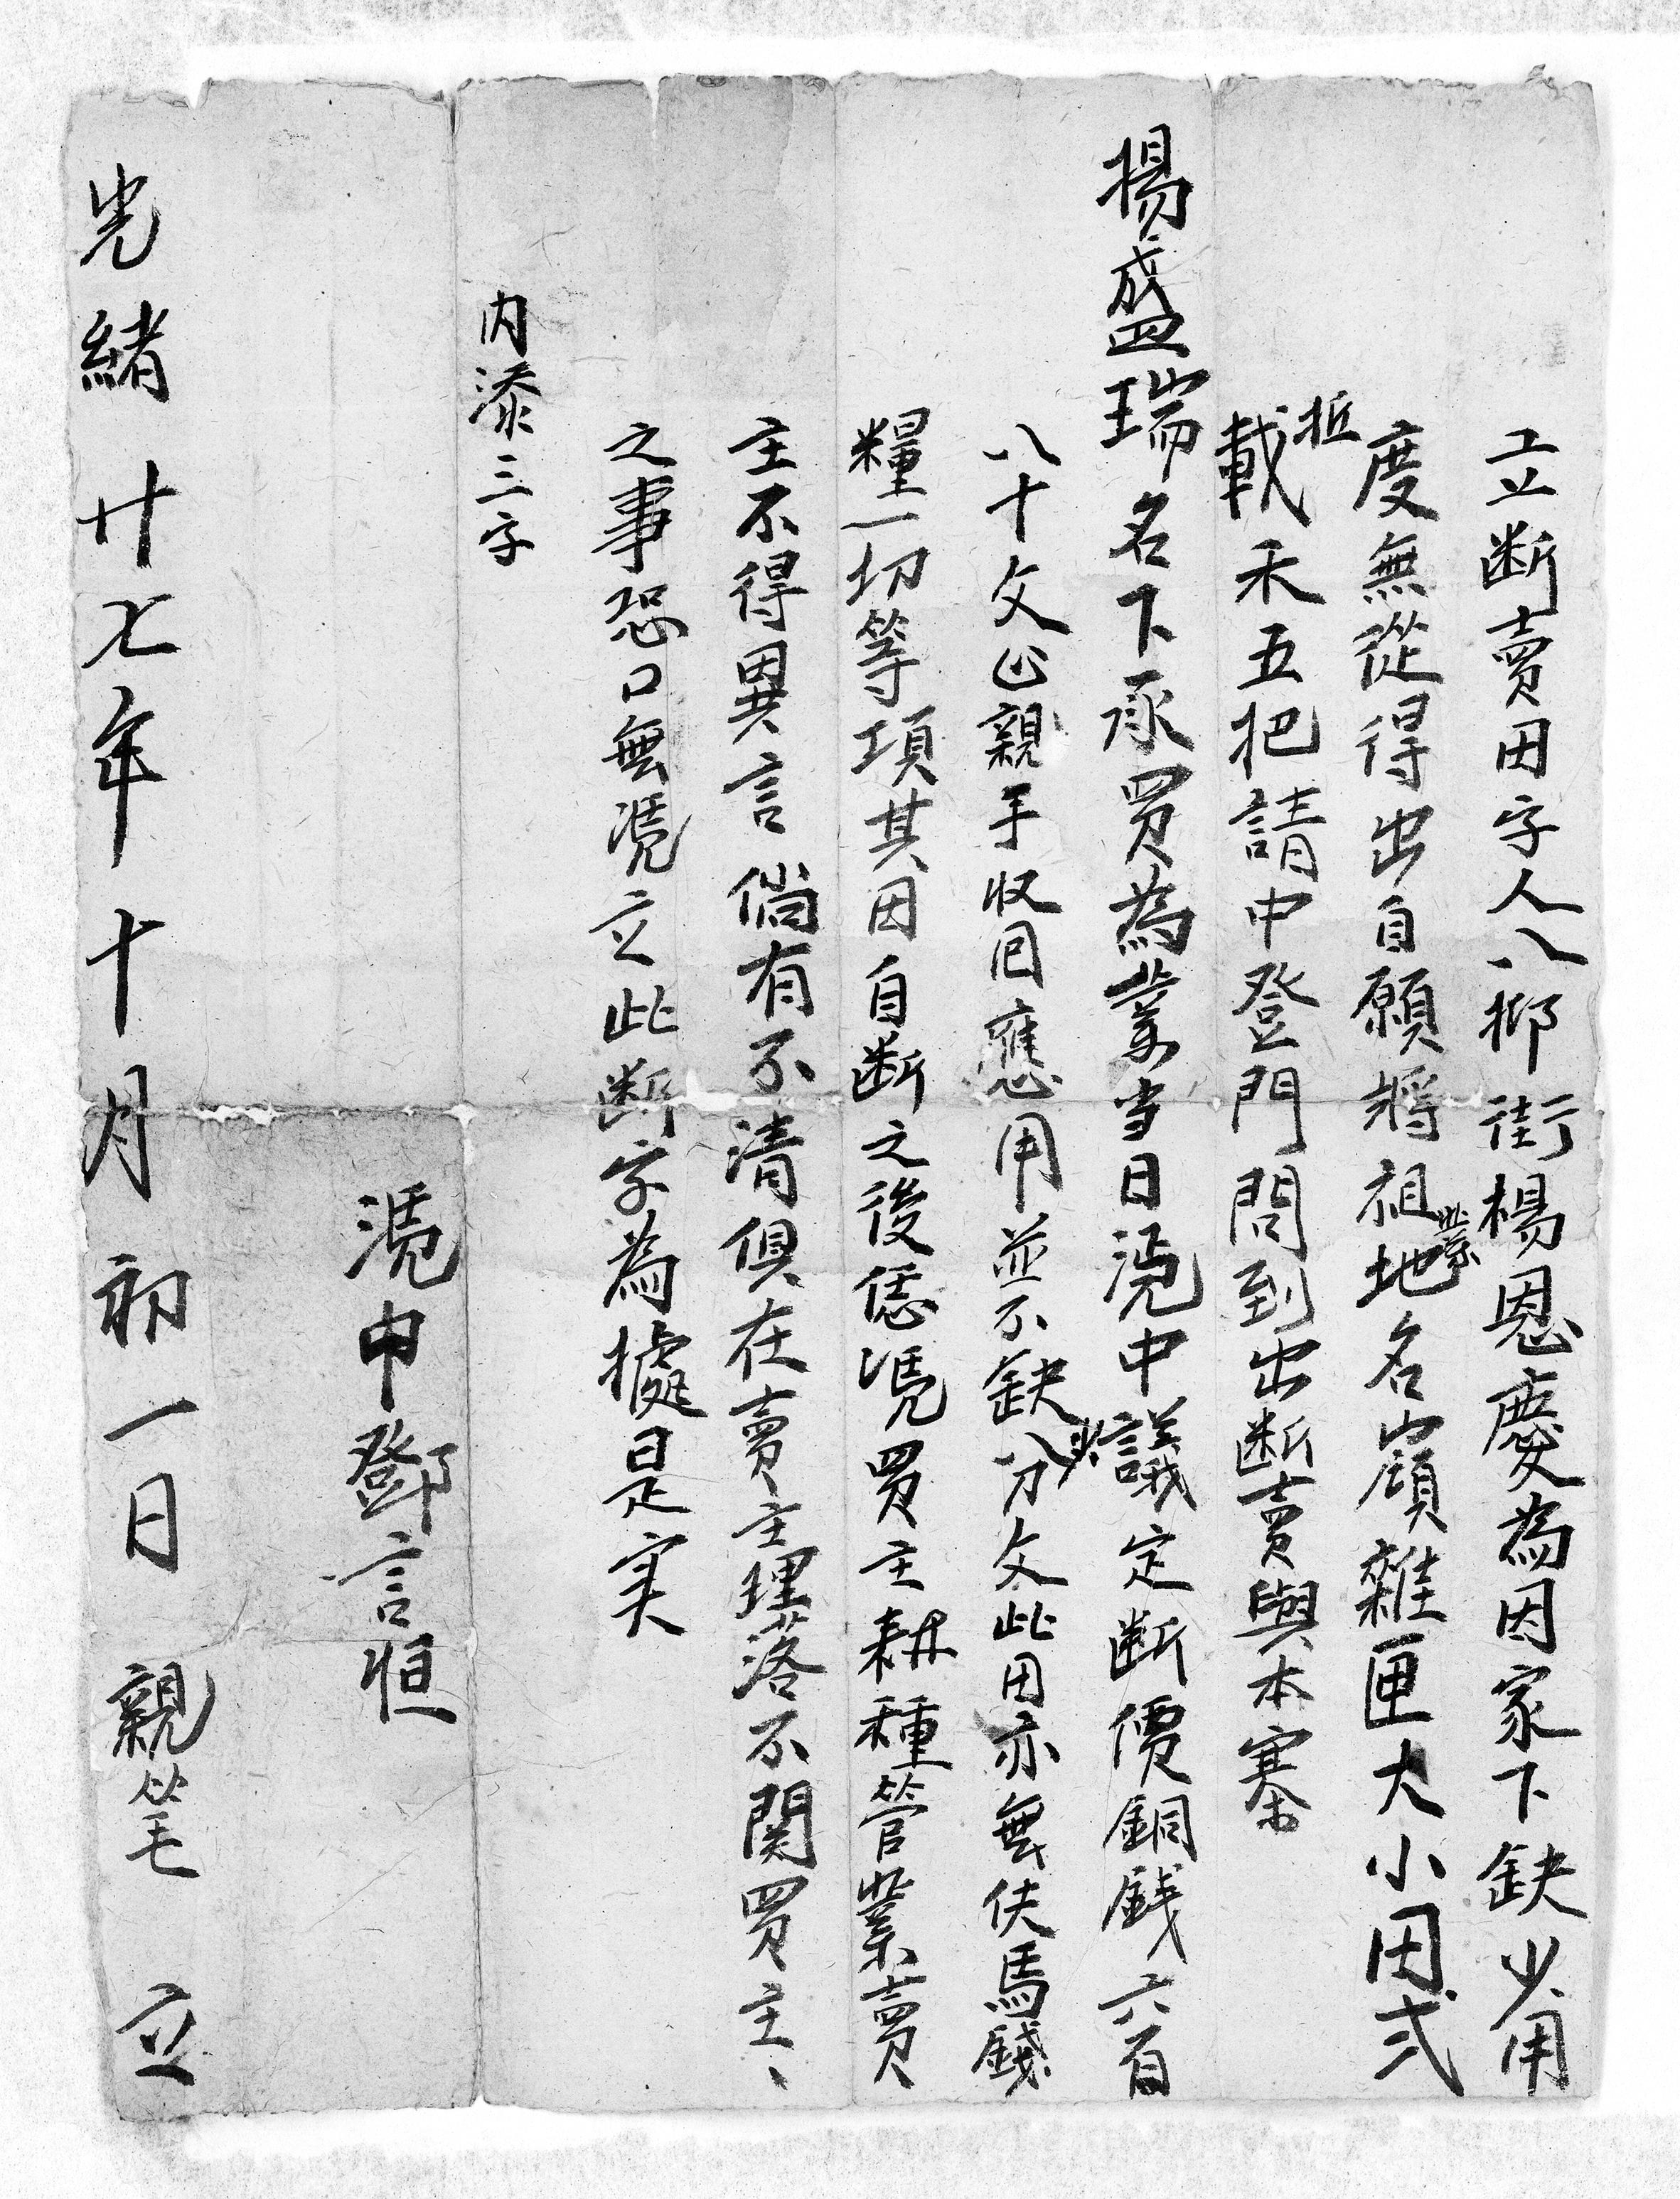 立断賣田字人八挷街楊恩慶為因家下缺少用
度無從得出自願將祖業地名嶺雜匣大小田弍
坵載禾五把請中登門問到出断賣與本寨
楊盛瑞名下承買為業当日凴中議定断價銅銭六百
八十文正親手收囘應用並不缺少分文此田亦無伕馬錢
糧一切等項其田自断之後恁凴買主耕種管業賣
主不得異言倘有不清俱在賣主理落不関買主、
之事恐口無凴立此断字為據是实
内添三字
凴中鄧言恒
光緒廿七年十月初一日親筆立